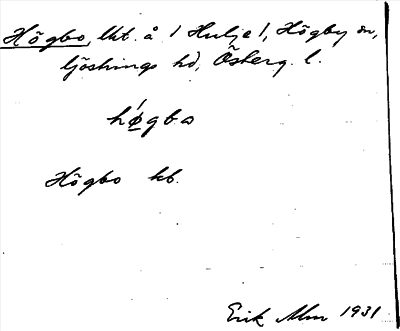 Högbo, lht. å 1 Hulje 1, Högby sn,
Göstrings hd, Österg. l.
hø̀gbo
Högbo kb.
Erik Alm 1931